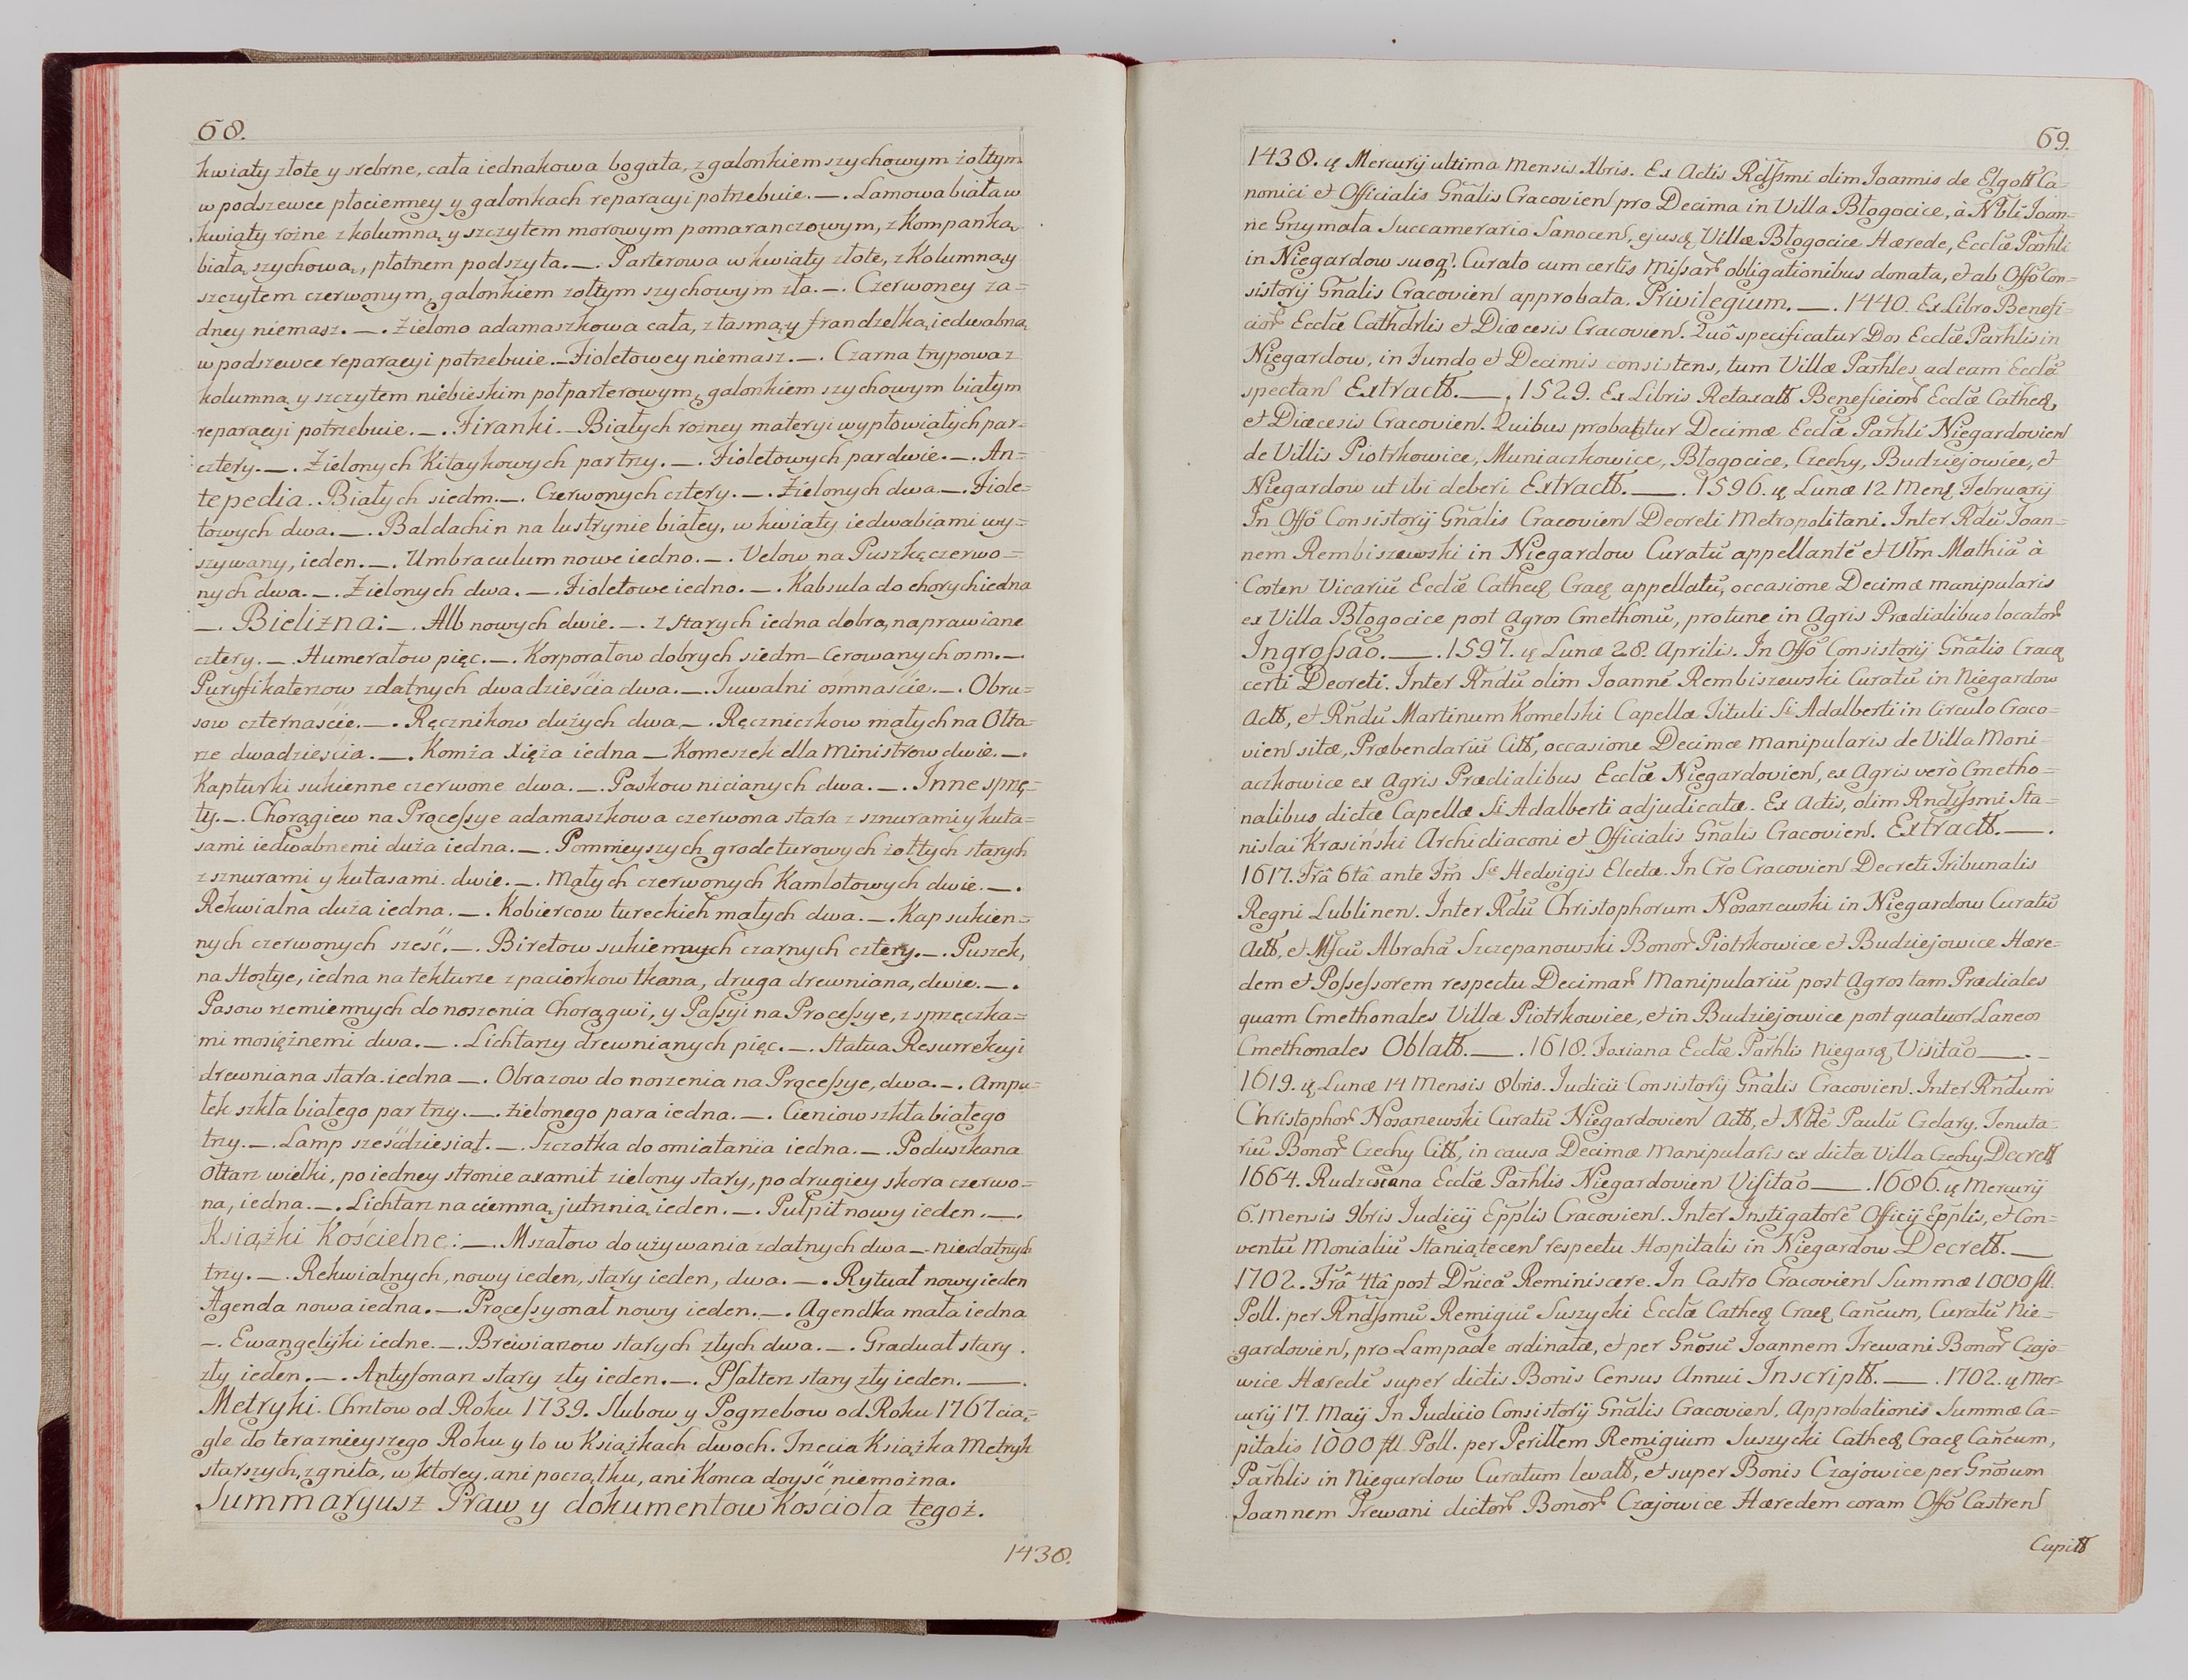 68.
kwiaty złote y srebrne, cała iednakowa bogata, z galonkiem szychowym żołtym
w podszewce płocienney y galonkach reparacyi potrzebuie. —. Lamowa biała w
kwiaty rożne z kolumną y szczytem morowym pomaranczowym, z Kompanką
białą szychową, płotnem podszyta. —. Parterowa w kwiaty złote, z Kolumną y
szczytem czerwonym, galonkiem żołtym szychowym zła. —. Czerwoney ża=
dney niemasz. —. Zielono adamaszkowa cała, z tasmą y frandzelką iedwabną
w podszewce reparacyi potrzebuie. — Fioletowey niemasz. —. Czarna trypowa z
kolumną y szczytem niebieskim połparterowym, galonkiem szychowym białym
reparacyi potrzebuie. —. Firanki. — Białych rożney materyi wypłowiałych par=
cztery. —. Zielonych Kitaykowych par trzy. —. Fioletowych par dwie. —. An=
tepedia. Białych siedm. —. Czerwonych cztery. —. Zielonych dwa. —. Fiole=
towych dwa. —. Baldachin na lustrynie białey, w kwiaty iedwabiami wy=
szywany, ieden. —. Umbraculum nowe iedno. —. Velow na Puszkę czerwo=
nych dwa. —. Zielonych dwa. —. Fioletowe iedno. —. Kabsula do chorych iedna
—. Bielizna: —. Alb nowych dwie. —. z starych iedna dobra, naprawiane
cztery. —. Humerałow pięc. —. Korporałow dobrych siedm — Cerowanych osm. —.
Puryfikaterzow zdatnych dwadzieścia dwa. —. Tuwalni osmnaście. —. Obru=
sow czternaście. —. Ręcznikow dużych dwa. —. Ręczniczkow małych na Ołta=
rze dwadzieścia. —. Komża Xięża iedna — Komeszek dla Ministrow dwie. —.
Kapturki sukienne czerwone dwa. —. Paskow nicianych dwa. —. Inne sprzę=
ty. —. Chorągiew na Processye adamaszkowa czerwona stara z sznurami y kuta=
sami iedwabnemi duża iedna. —. Pomnieyszych grodeturowych żołtych starych
z sznurami y kutasami dwie. —. Małych czerwonych Kamlotowych dwie. —.
Rekwialna duża iedna. —. Kobiercow tureckich małych dwa. —. Kap sukien=
nych czerwonych sześć. —. Biretow sukiennych czarnych cztery. —. Puszek,
na Hostye, iedna na tekturze z paciorkow tkana, druga drewniana, dwie. —.
Pasow rzemiennych do noszenia Chorągwi, y Passyi na Processye, z sprzączka=
mi mosiężnemi dwa. —. Lichtarzy drewnianych pięc. —. Statua Resurrekcyi
drewniana stara iedna —. Obrazow do noszenia na Processye, dwa. —. Ampu=
łek szkła białego par trzy. —. Zielonego para iedna. —. Cieniow szkła białego
trzy. —. Lamp sześdziesiąt. —. Szczotka do omiatania iedna. —. Poduszka na
Ołtarz wielki, po iedney stronie axamit zielony stary, po drugiey skora czerwo=
na, iedna. —. Lichtarz na ciemną jutrznią ieden. —. Pulpit nowy ieden. —.
Książki Kościelne: —. Mszałow do używania zdatnych dwa — niedatnych
trzy. —. Rekwialnych, nowy ieden, stary ieden, dwa. —. Rytuał nowy ieden
Agenda nowa iedna. — Processyonał nowy ieden. —. Agendka mała iedna
—. Ewangelijki iedne. —. Brewiarzow starych złych dwa. —. Graduał stary
zły ieden. —. Antyfonarz stary zły ieden. —. Psałterz stary zły ieden. —.
Metryki. Chrztow od Roku 1739. Slubow y Pogrzebow od Roku 1767 cią=
gle do teraznieyszego Roku y to w Książkach dwoch. Trzecia Książka Metryk
starszych, zgniła, w ktorey ani początku, ani Konca doyść niemożna.
Summaryusz Praw y dokumentow Kościoła tegoż.
1438.
69.
1438. ię Mercurij ultima Mensis Xbris. Ex Actis Rdssmi olim Joannis de Elgott Ca=
nonici et Officialis Gñalis Cracovien pro Decima in Villa Błogocice, à Nbli Joan=
ne Grzymała Succamerario Sanocen, ejusq Villæ Błogocice Hærede, Ecclæ Parhli
in Niegardow suoq. Curato cum certis Missar obligationibus donata, et ab Offo Con=
sistorij Gñalis Cracovien approbata. Privilegium. —. 1440. Ex Libro Benefi=
cior Ecclæ Cathdrlis et Diæcesis Cracovien. Quô specificatur Dos Ecclæ Parhlis in
Niegardow, in Fundo et Decimis consistens, tum Villæ Parhles ad eam Ecclã
spectan Extractt. —. 1529. Ex Libris Retaxatt Beneficior Ecclæ Cathed,
et Diæcesis Cracovien. Quibus probantur Decimæ Ecclæ Parhli Niegardovien
de Villis Piotrkowice, Muniaczkowice, Błogocice, Czechy, Budziejowice, et
Niegardow ut ibi deberi Extractt. —. 1596. ię Lunæ 12 Mens Februarij
In Offo Consistorij Gñalis Cracovien Decreti Metropolitani. Inter Rdũ Joan=
nem Rembiszewski in Niegardow Curatũ appellantẽ et Vlm Mathiã à
Costen Vicariũ Ecclæ Cathed Crac appellatũ, occasione Decimæ manipularis
ex Villa Błogocice post Agros Cmethonũ, pro tunc in Agris Prædialibus locator
Ingrossao. —. 1597. ię Lunæ 28. Aprilis. In Offo Consistorij Gñalis Crac
certi Decreti. Inter Rndũ olim Joannẽ Rembiszewski Curatũ in Niegardow
Actt, et Rndũ Martinum Komelski Capellæ Tituli Sti Adalberti in Circulo Craco=
vien sitæ, Præbendariũ Citt, occasione Decimæ Manipularis de Villa Moni=
aczkowice ex Agris Prædialibus Ecclæ Niegardovien, ex Agris verò Cmetho=
nalibus dictæ Capellæ Sti Adalberti adjudicatæ. Ex Actis, olim Rndssmi Sta=
nislai Krasiński Archidiaconi et Officialis Gñalis Cracovien. Extractt. —.
1617. Friâ 6tâ ante Fm Stæ Hedvigis Electæ. In Cro Cracovien Decreti Tribunalis
Regni Lublinen. Inter Rdũ Christophorum Nosarzewski in Niegardow Curatũ
Actt, et Mfcũ Abrahã Szczepanowski Bonor Piotrkowice et Budziejowice Hære=
dem et Possessorem respectu Decimar Manipulariũ post Agros tam Prædiales
quam Cmethonales Villæ Piotrkowice, et in Budziejowice post quatuor Laneos
Cmethonales Oblatt. —. 1618. Foxiana Ecclæ Parhlis Niegard Visitao —.
1619. ię Lunæ 14 Mensis 8bris. Judicii Consistorij Gñalis Cracovien. Inter Rndum
Christophor Nosarzewski Curatũ Niegardovien Actt, et Nblẽ Paulũ Czelary, Tenuta=
riũ Bonor Czechy Citt, in causa Decimæ Manipularis ex dicta Villa Czechy Decrett
1664. Rudzciana Ecclæ Parhlis Niegardovien Visitao —. 1686. ię Mercurij
6. Mensis 9bris Judicij Epplis Cracovien. Inter Instigatorẽ Officij Epplis, et Con=
ventũ Monialiũ Staniątecen respectu Hospitalis in Niegardow Decrett. —
1702. Friâ 4tâ post Dnicã Reminiscere. In Castro Cracovien Summæ 1000 fll.
Poll. per Rndssmũ Remigiũ Suszycki Ecclæ Cathed Crac Cañcum, Curatũ Nie=
gardovien, pro Lampade ordinatæ, et per Gñosũ Joannem Trewani Bonor Czajo=
wice Hæredẽ super dictis Bonis Census Annui Inscriptt. —. 1702. ię Mer=
curij 17. Maij In Judicio Consistorij Gñalis Cracovien. Approbationis Summæ Ca=
pitalis 1000 fll Poll. per Perillem Remigium Suszycki Cathed Crac Cañcum,
Parhlis in Niegardow Curatum levatt, et super Bonis Czajowice per Gñosum
Joannem Trewani dictor Bonor Czajowice Hæredem coram Offo Castren
Capitt